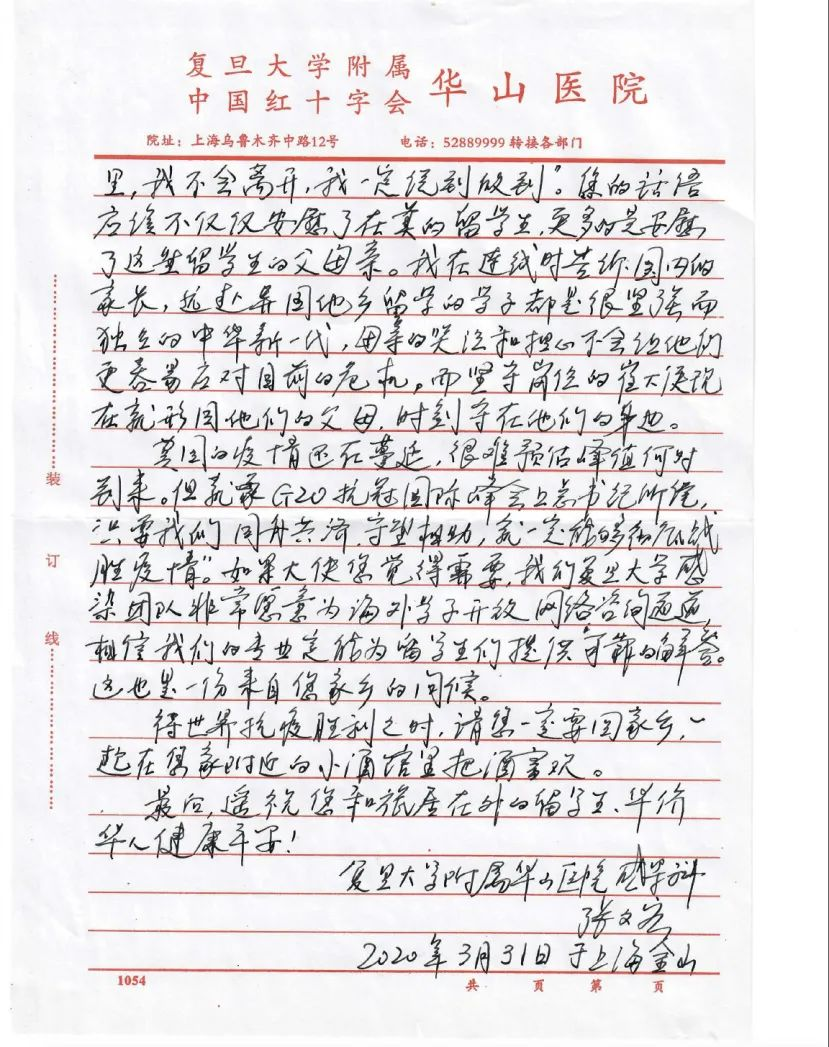 复旦大学附属
中国红十字会 华山医院
院址：上海乌鲁木齐中路12号 电话：52889999 转接各部门
里，我不会离开，我一定说到做到”。您的话语
应该不仅仅安慰了在英的留学生，更多的是安慰
了这些留学生的父母亲。我在连线时告诉国内的
家长，远赴异国他乡留学的学子都是很坚强而
独立的中华新一代，母亲的哭泣和担心不会让他们
更容易应对目前的危机。而坚守岗位的崔大使现
在就形同他们的父母，时刻守在他们的身边。
英国的疫情还在蔓延，很难预估峰值何时
到来。但就象G20抗冠国际峰会上总书记所说，
只要我们同舟共济、守望相助，就一定能够彻底战
胜疫情”。如果大使您觉得需要，我们复旦大学感
染团队非常愿意为海外学子开放网络咨询通道，
相信我们的专业定能为留学生们提供可靠的解答。
这也是一份来自您家乡的问候。
待世界抗疫胜利之时，请您一定要回家乡，一
起在您家附近的小酒馆里把酒言欢。
最后，遥祝您和旅居在外的留学生、华侨
华人健康平安！
复旦大学附属华山医院感染科
张文宏
2020年3月31日于上海金山
装
订
线
1054 共 页 第 页